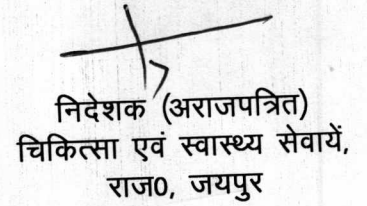 निदेशक (अराजपत्रित)
चिकित्सा एवं स्वास्थ्य सेवायें,
राज0, जयपुर